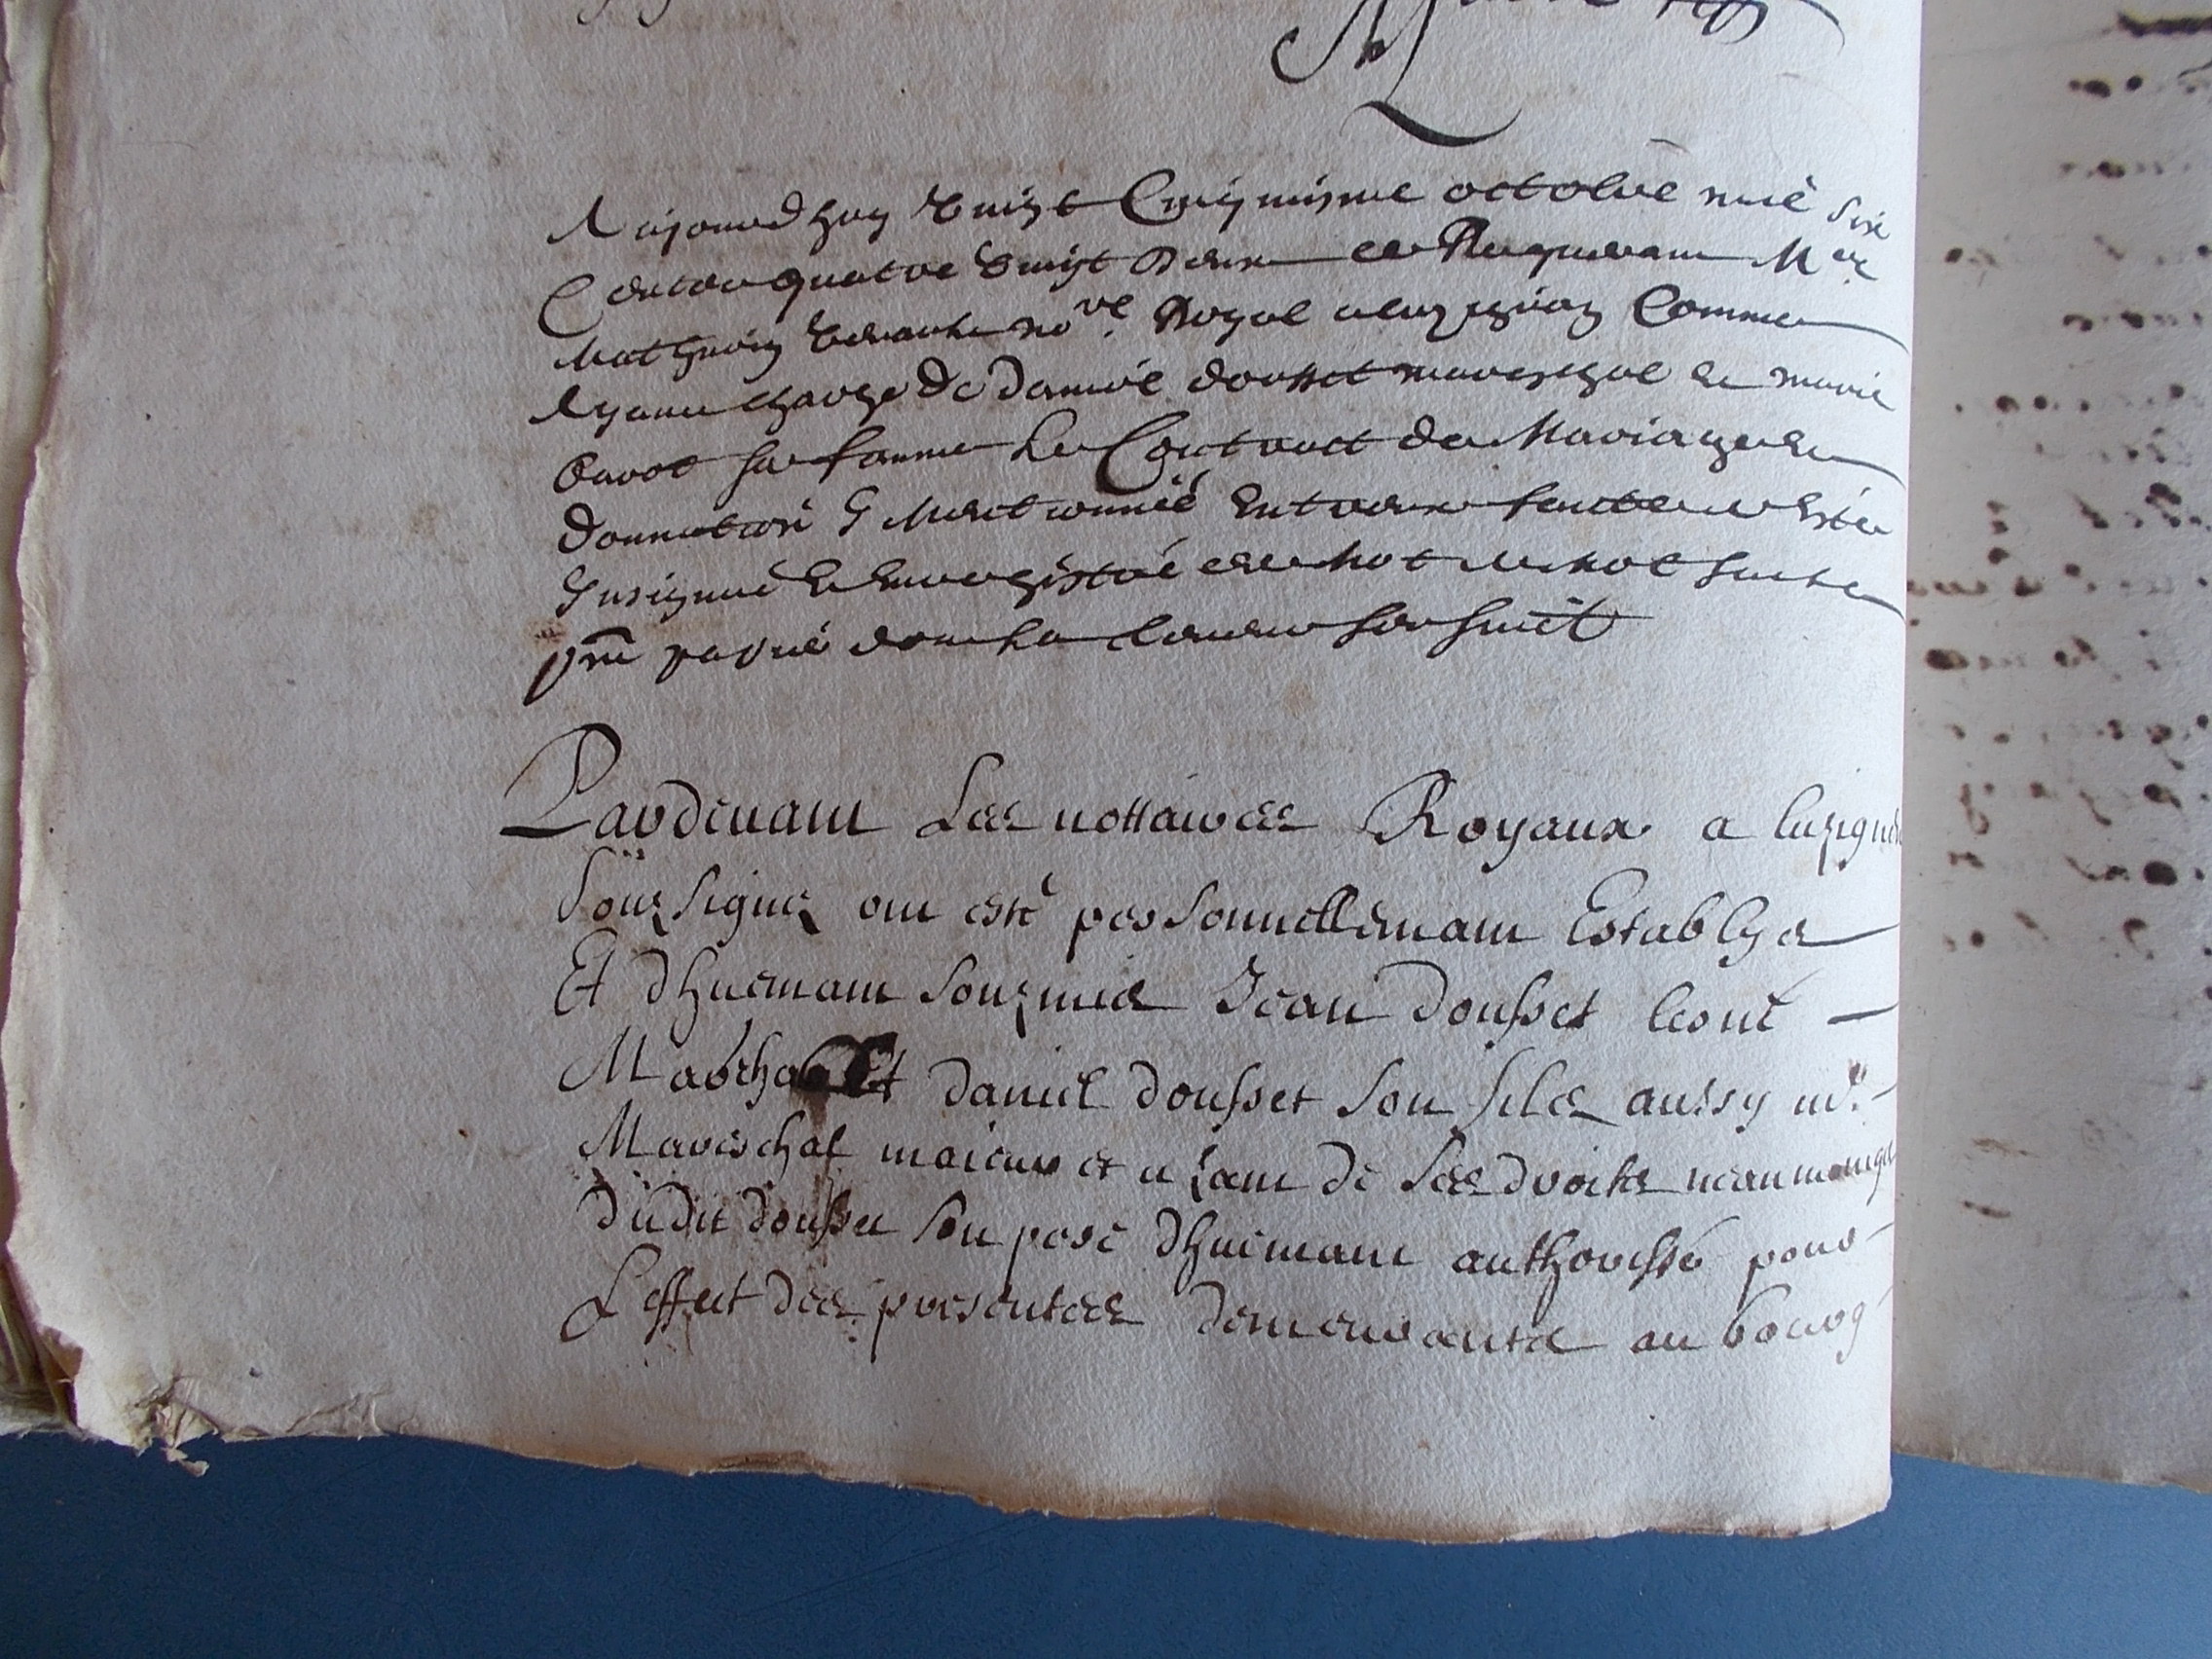 Aujourdhuy vingt Cinquiesme octobre mil six
Cent quatre vingt deux ce Requerant Mre
Mathurin no.re Royal a luzignan Comme
Ayant charge de daniel dousset mareschal et marie
sa famme Le Contract de Mariage et
donnation y Mentionnée Entreux faicte a esté
Insigniué et Enregistré de mot a mot sur le
pnt papié dont la teneur sensuit
Pardevant Les nottaires Royaux a luzignan
Souz signez ont esté personnellemant Establys
Et dhuemant souzmis Jean dousset lesné
Mareschal Et daniel dousset son fils aussy me.
Mareschal maieur et uzant de ses droits
dudit dousset son pere dhuemant authorissé pour
Leffect des presentes demeurants au bourg